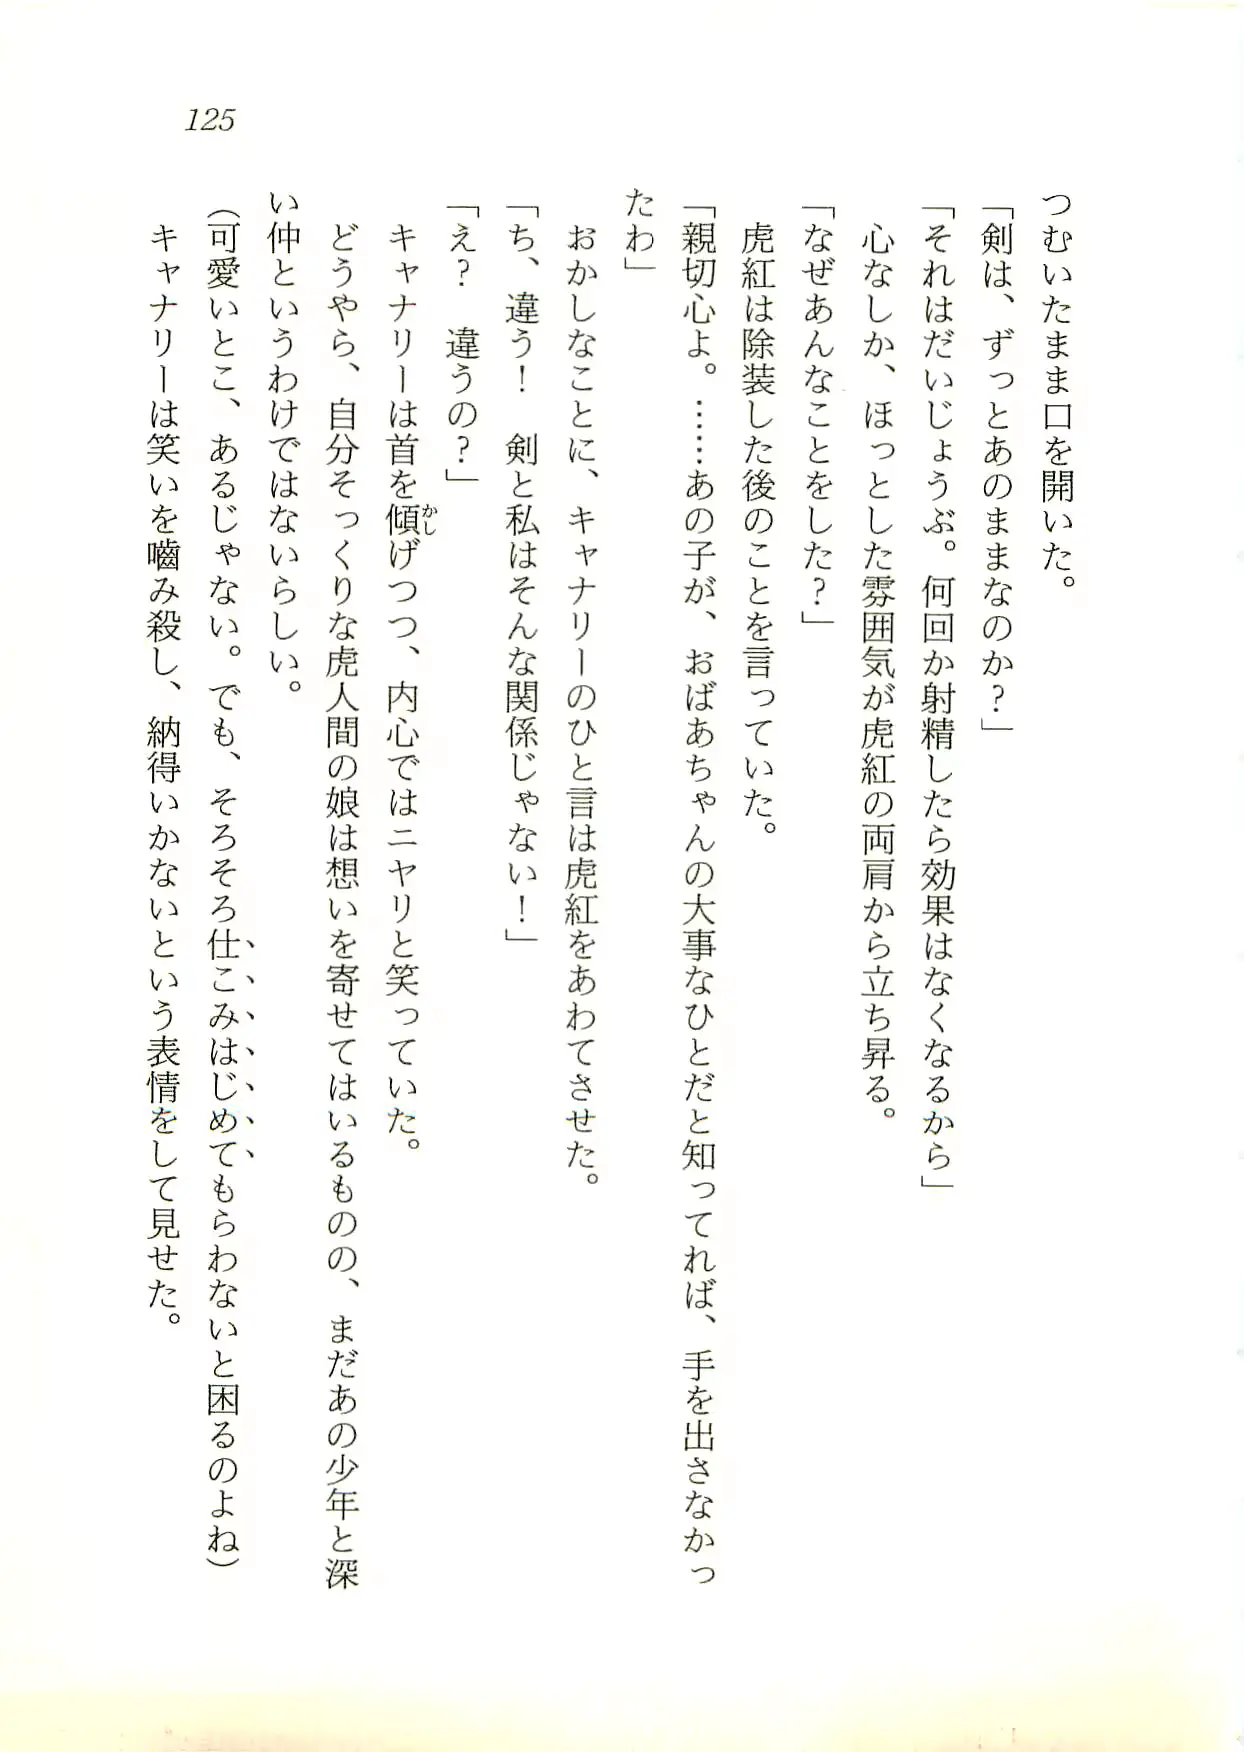 125
つむいたまま口を開いた。
「剣は、ずっとあのままなのか？」
「それはだいじょうぶ。何回か射精したら効果はなくなるから」
心なしか、ほっとした雰囲気が虎紅の両肩から立ち昇る。
「なぜあんなことをした？」
虎紅は除装した後のことを言っていた。
「親切心よ。……あの子が、おばあちゃんの大事なひとだと知ってれば、手を出さなかっ
たわ」
おかしなことに、キャナリーのひと言は虎紅をあわてさせた。
「ち、違う！　剣と私はそんな関係じゃない！」
「え？　違うの？」
キャナリーは首を傾かしげつつ、内心ではニヤリと笑っていた。
どうやら、自分そっくりな虎人間の娘は想いを寄せてはいるものの、まだあの少年と深
い仲というわけではないらしい。
（可愛いとこ、あるじゃない。でも、そろそろ仕こみはじめてもらわないと困るのよね）
キャナリーは笑いを嚙み殺し、納得いかないという表情をして見せた。